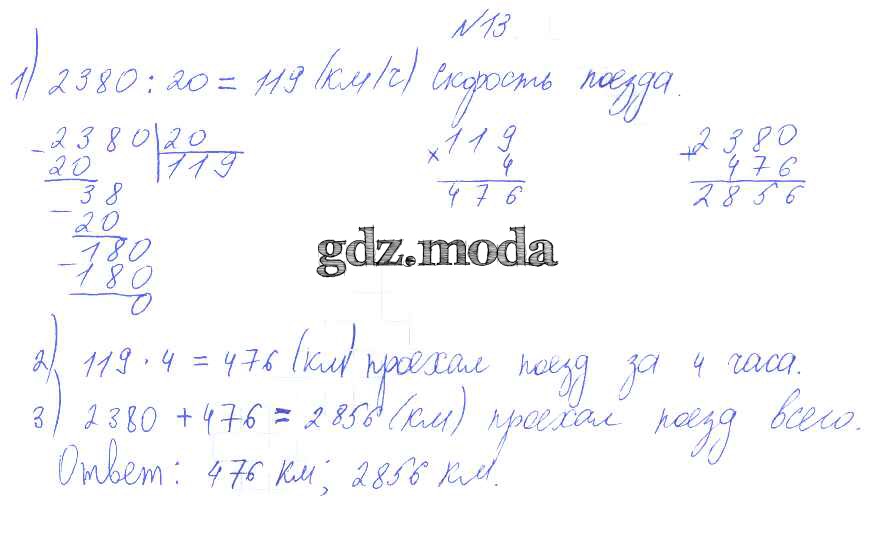 №13.
1) 2380 : 20 = 119 (км/ч) скорость поезда.
- 2380 | 20
20 | 119
- 38
20
- 180
180
0
× 119
4
476
+ 2380
476
2856
gdz.moda
2) 119 · 4 = 476 (км) проехал поезд за 4 часа.
3) 2380 + 476 = 2856 (км) проехал поезд всего.
Ответ: 476 км; 2856 км.